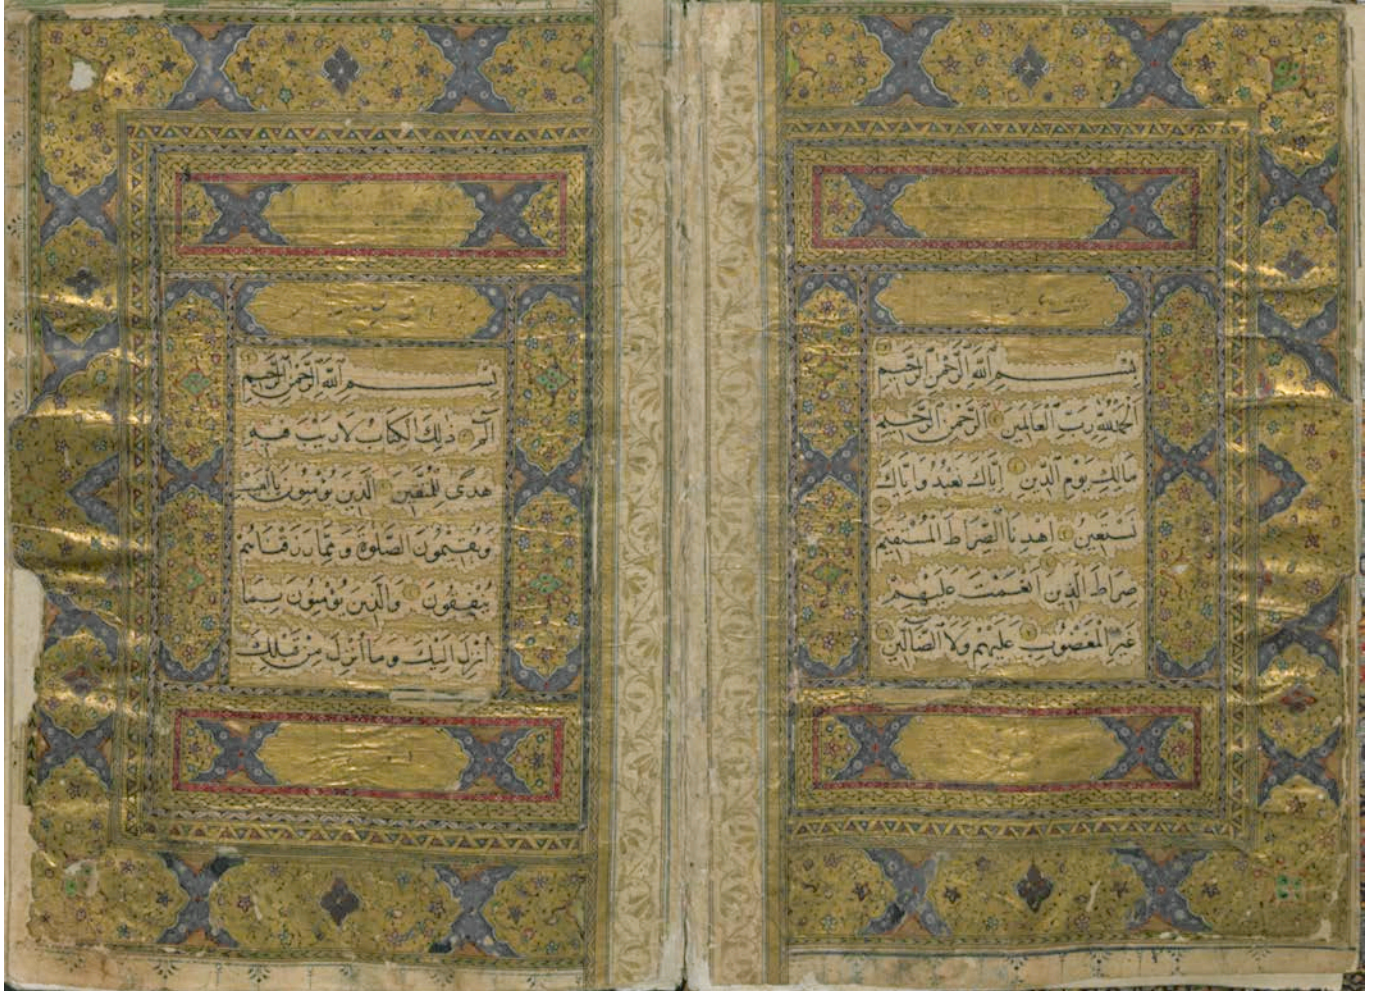 بِسْمِ ٱللَّهِ ٱلرَّحْمٰنِ ٱلرَّحِيمِ
اَلْحَمْدُ لِلّٰهِ رَبِّ ٱلْعَالَمِينَ ٱلرَّحْمٰنِ ٱلرَّحِيمِ
مَالِكِ يَوْمِ ٱلدِّينِ اِيَّاكَ نَعْبُدُ وَاِيَّاكَ
نَسْتَعِينُ اِهْدِنَا ٱلصِّرَاطَ ٱلْمُسْتَقِيمَ
صِرَاطَ ٱلَّذِينَ اَنْعَمْتَ عَلَيْهِمْ
غَيْرِ ٱلْمَغْضُوبِ عَلَيْهِمْ وَلَا ٱلضَّآلِّينَ
بِسْمِ ٱللَّهِ ٱلرَّحْمٰنِ ٱلرَّحِيمِ
الٓمٓ ذٰلِكَ ٱلْكِتَابُ لَا رَيْبَ فِيهِ
هُدًى لِلْمُتَّقِينَ اَلَّذِينَ يُؤْمِنُونَ بِالْغَيْبِ
وَيُقِيمُونَ ٱلصَّلٰوةَ وَمِمَّا رَزَقْنَاهُمْ
يُنْفِقُونَ وَٱلَّذِينَ يُؤْمِنُونَ بِمَا
اُنْزِلَ اِلَيْكَ وَمَا اُنْزِلَ مِنْ قَبْلِكَ